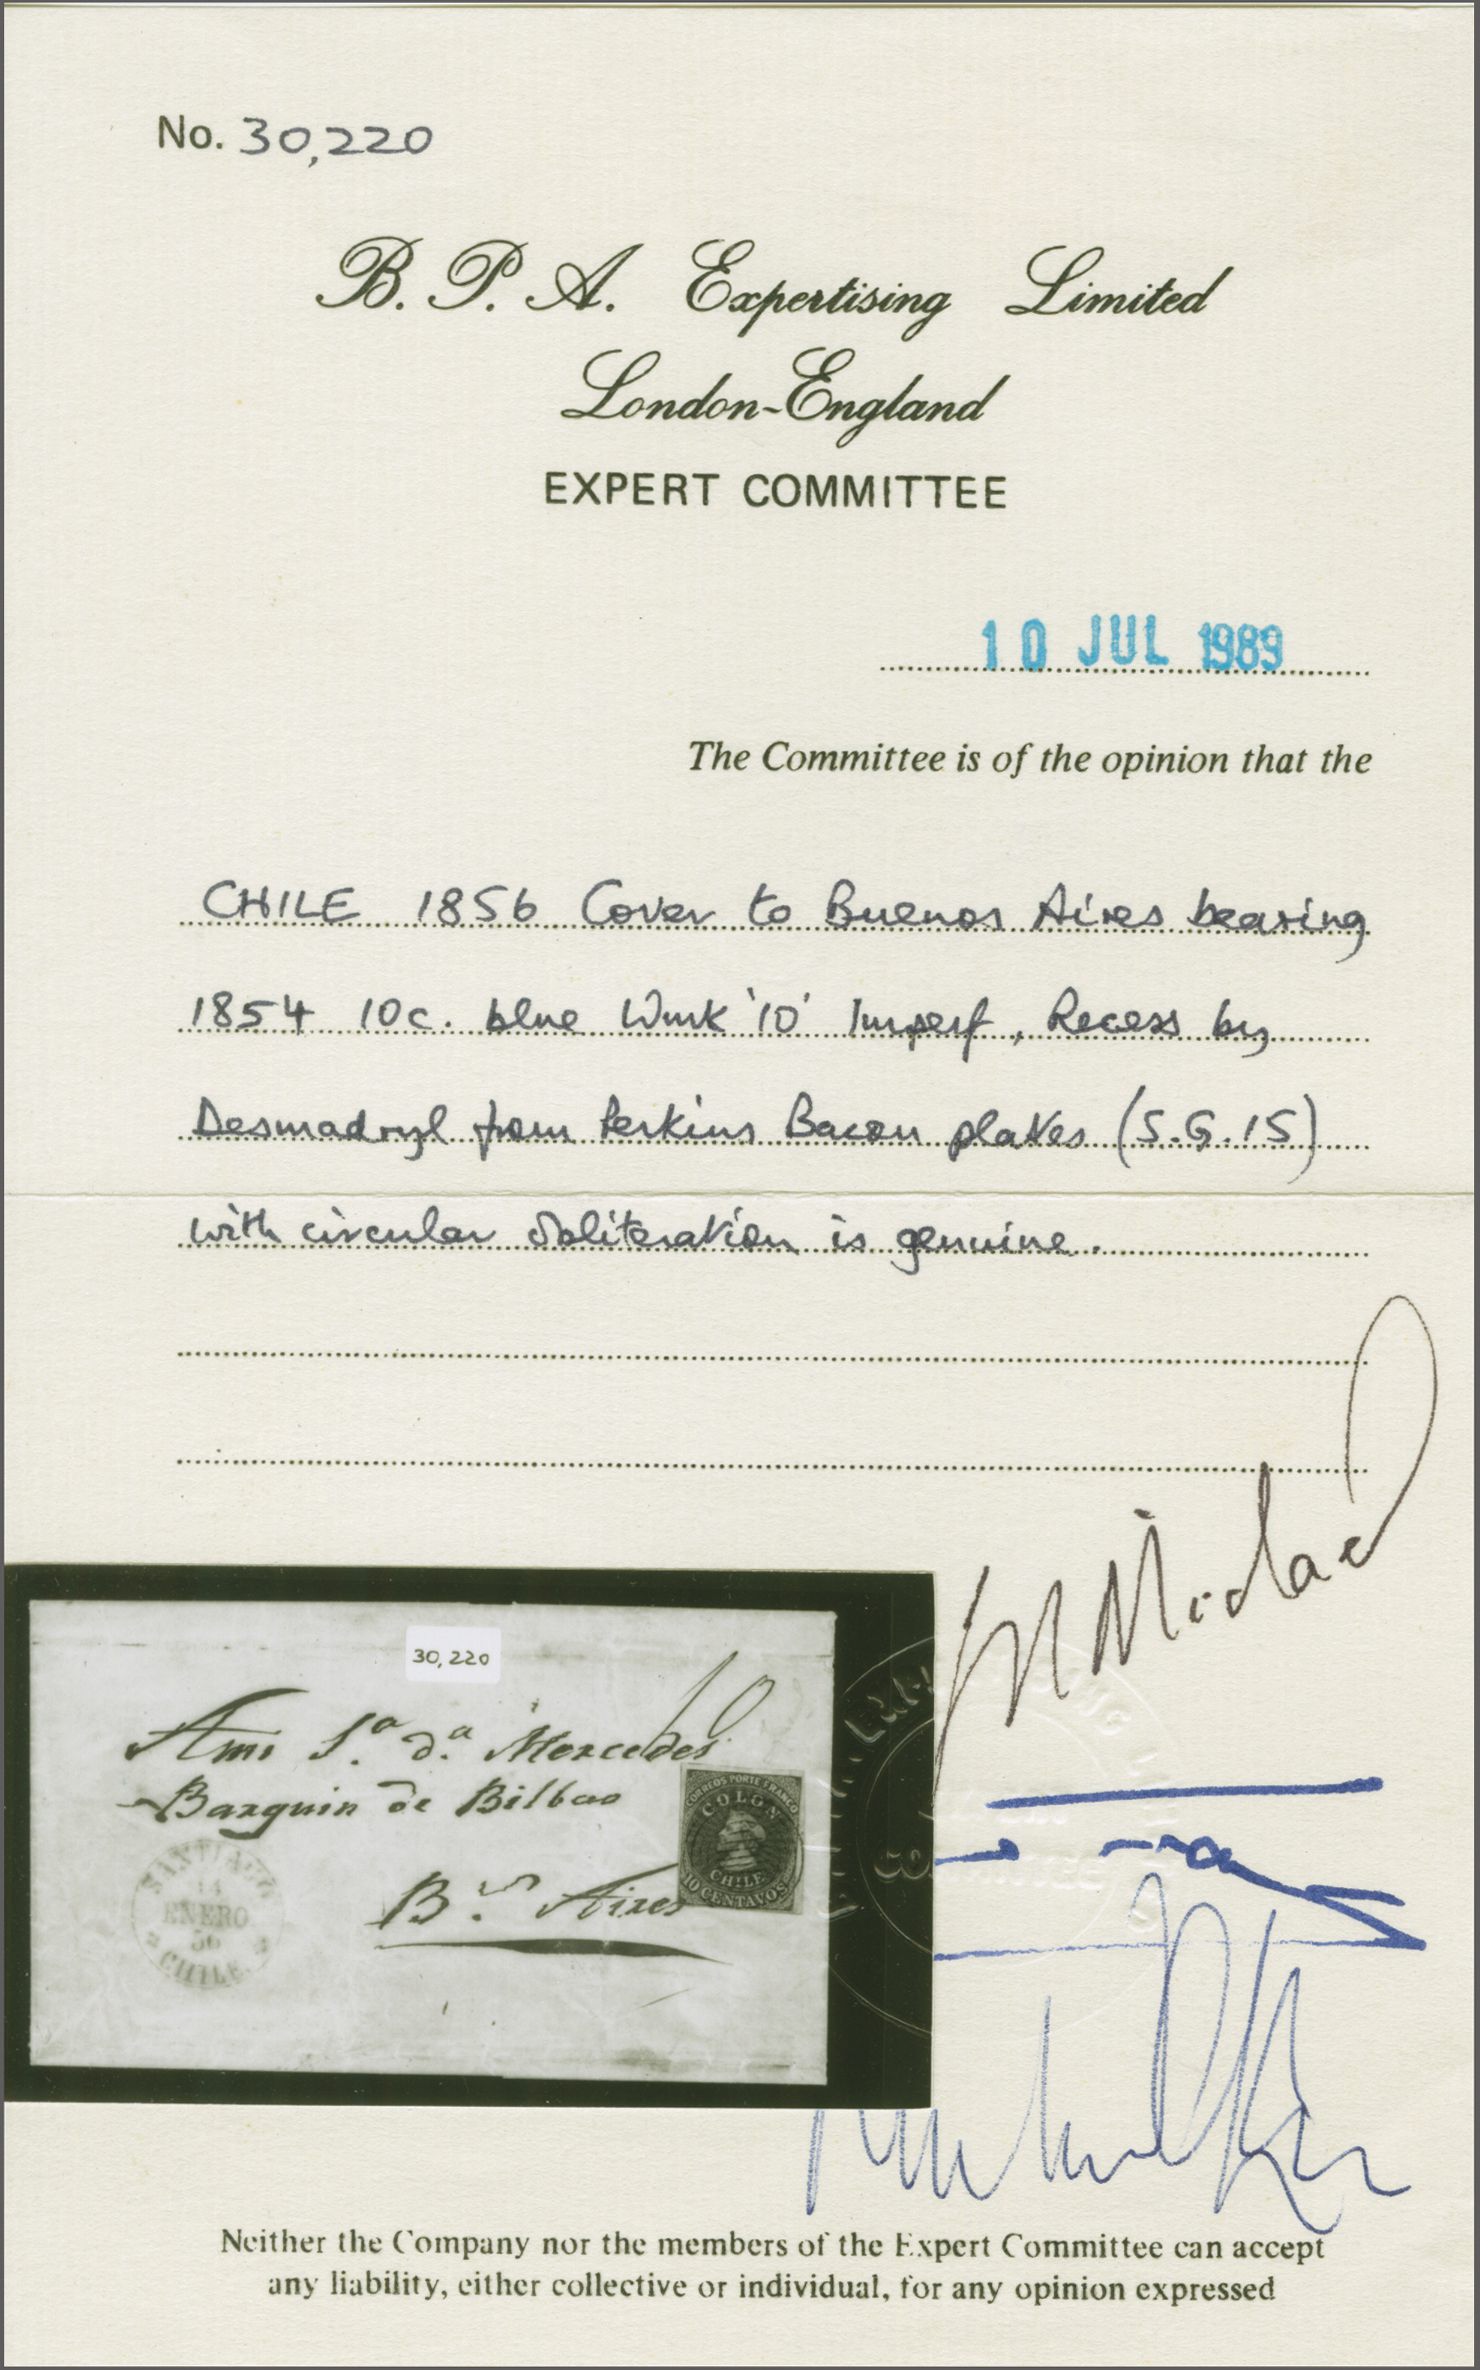 No. 30,220
B. P. A. Expertising Limited
London-England
EXPERT COMMITTEE
10 JUL 1989
The Committee is of the opinion that the
CHILE 1856 Cover to Buenos Aires bearing
1854 10c. blue Wmk '10' Imperf, Recess by
Desmadryl from Perkins Bacon plates (S.G.15)
with circular obliteration is genuine.
30,220
10
Ami S.a d.a Mercedes
Barquin de Bilbao
B.s Aires
CORREOS PORTE FRANCO
COLON
CHILE
10 CENTAVOS
SANTIAGO
14
ENERO
56
CHILE
Neither the Company nor the members of the Expert Committee can accept
any liability, either collective or individual, for any opinion expressed